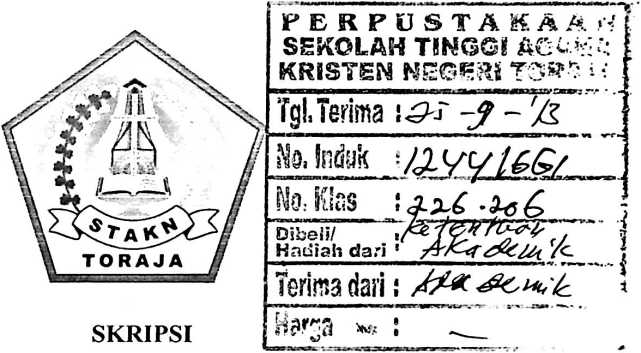 STAKN
TORAJA
SKRIPSI
PERPUSTAKAAN
SEKOLAH TINGGI AGAMA
KRISTEN NEGERI TORAJA
Tgl. Terima : 25-9-'13
No. Induk : 1244/661
No. Klas : 226.206
Dibeli/
Hadiah dari : Ketentuan
Akademik
Terima dari : Akademik
Harga : —